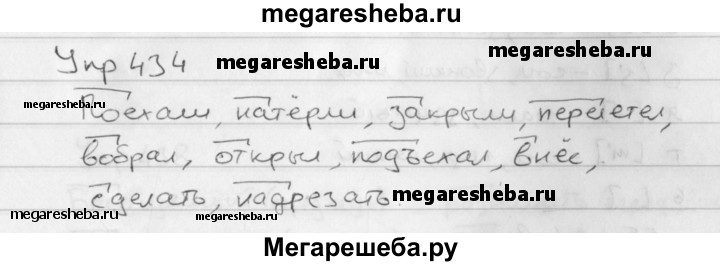 megaresheba.ru
Упр 434
megaresheba.ru
megaresheba.ru
megaresheba.ru
Поехали, натёрли, закрыли, перелетел,
вобрал, открыл, подъехал, внёс,
сделать, надрезать.
megaresheba.ru
megaresheba.ru
megaresheba.ru
Мегарешеба.ру